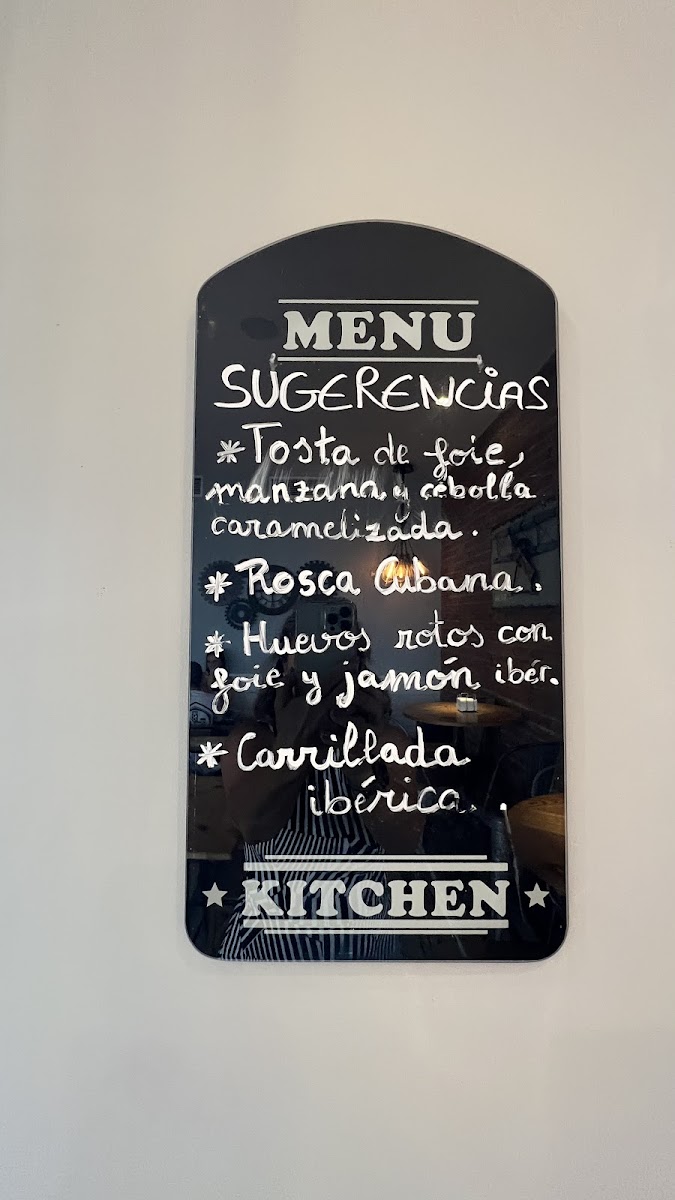 MENU
SUGERENCIAS
*Tosta de foie,
manzana y cebolla
caramelizada.
* Rosca Cubana.
* Huevos rotos con
foie y jamón ibér.
* Carrillada
ibérica.
★ KITCHEN ★